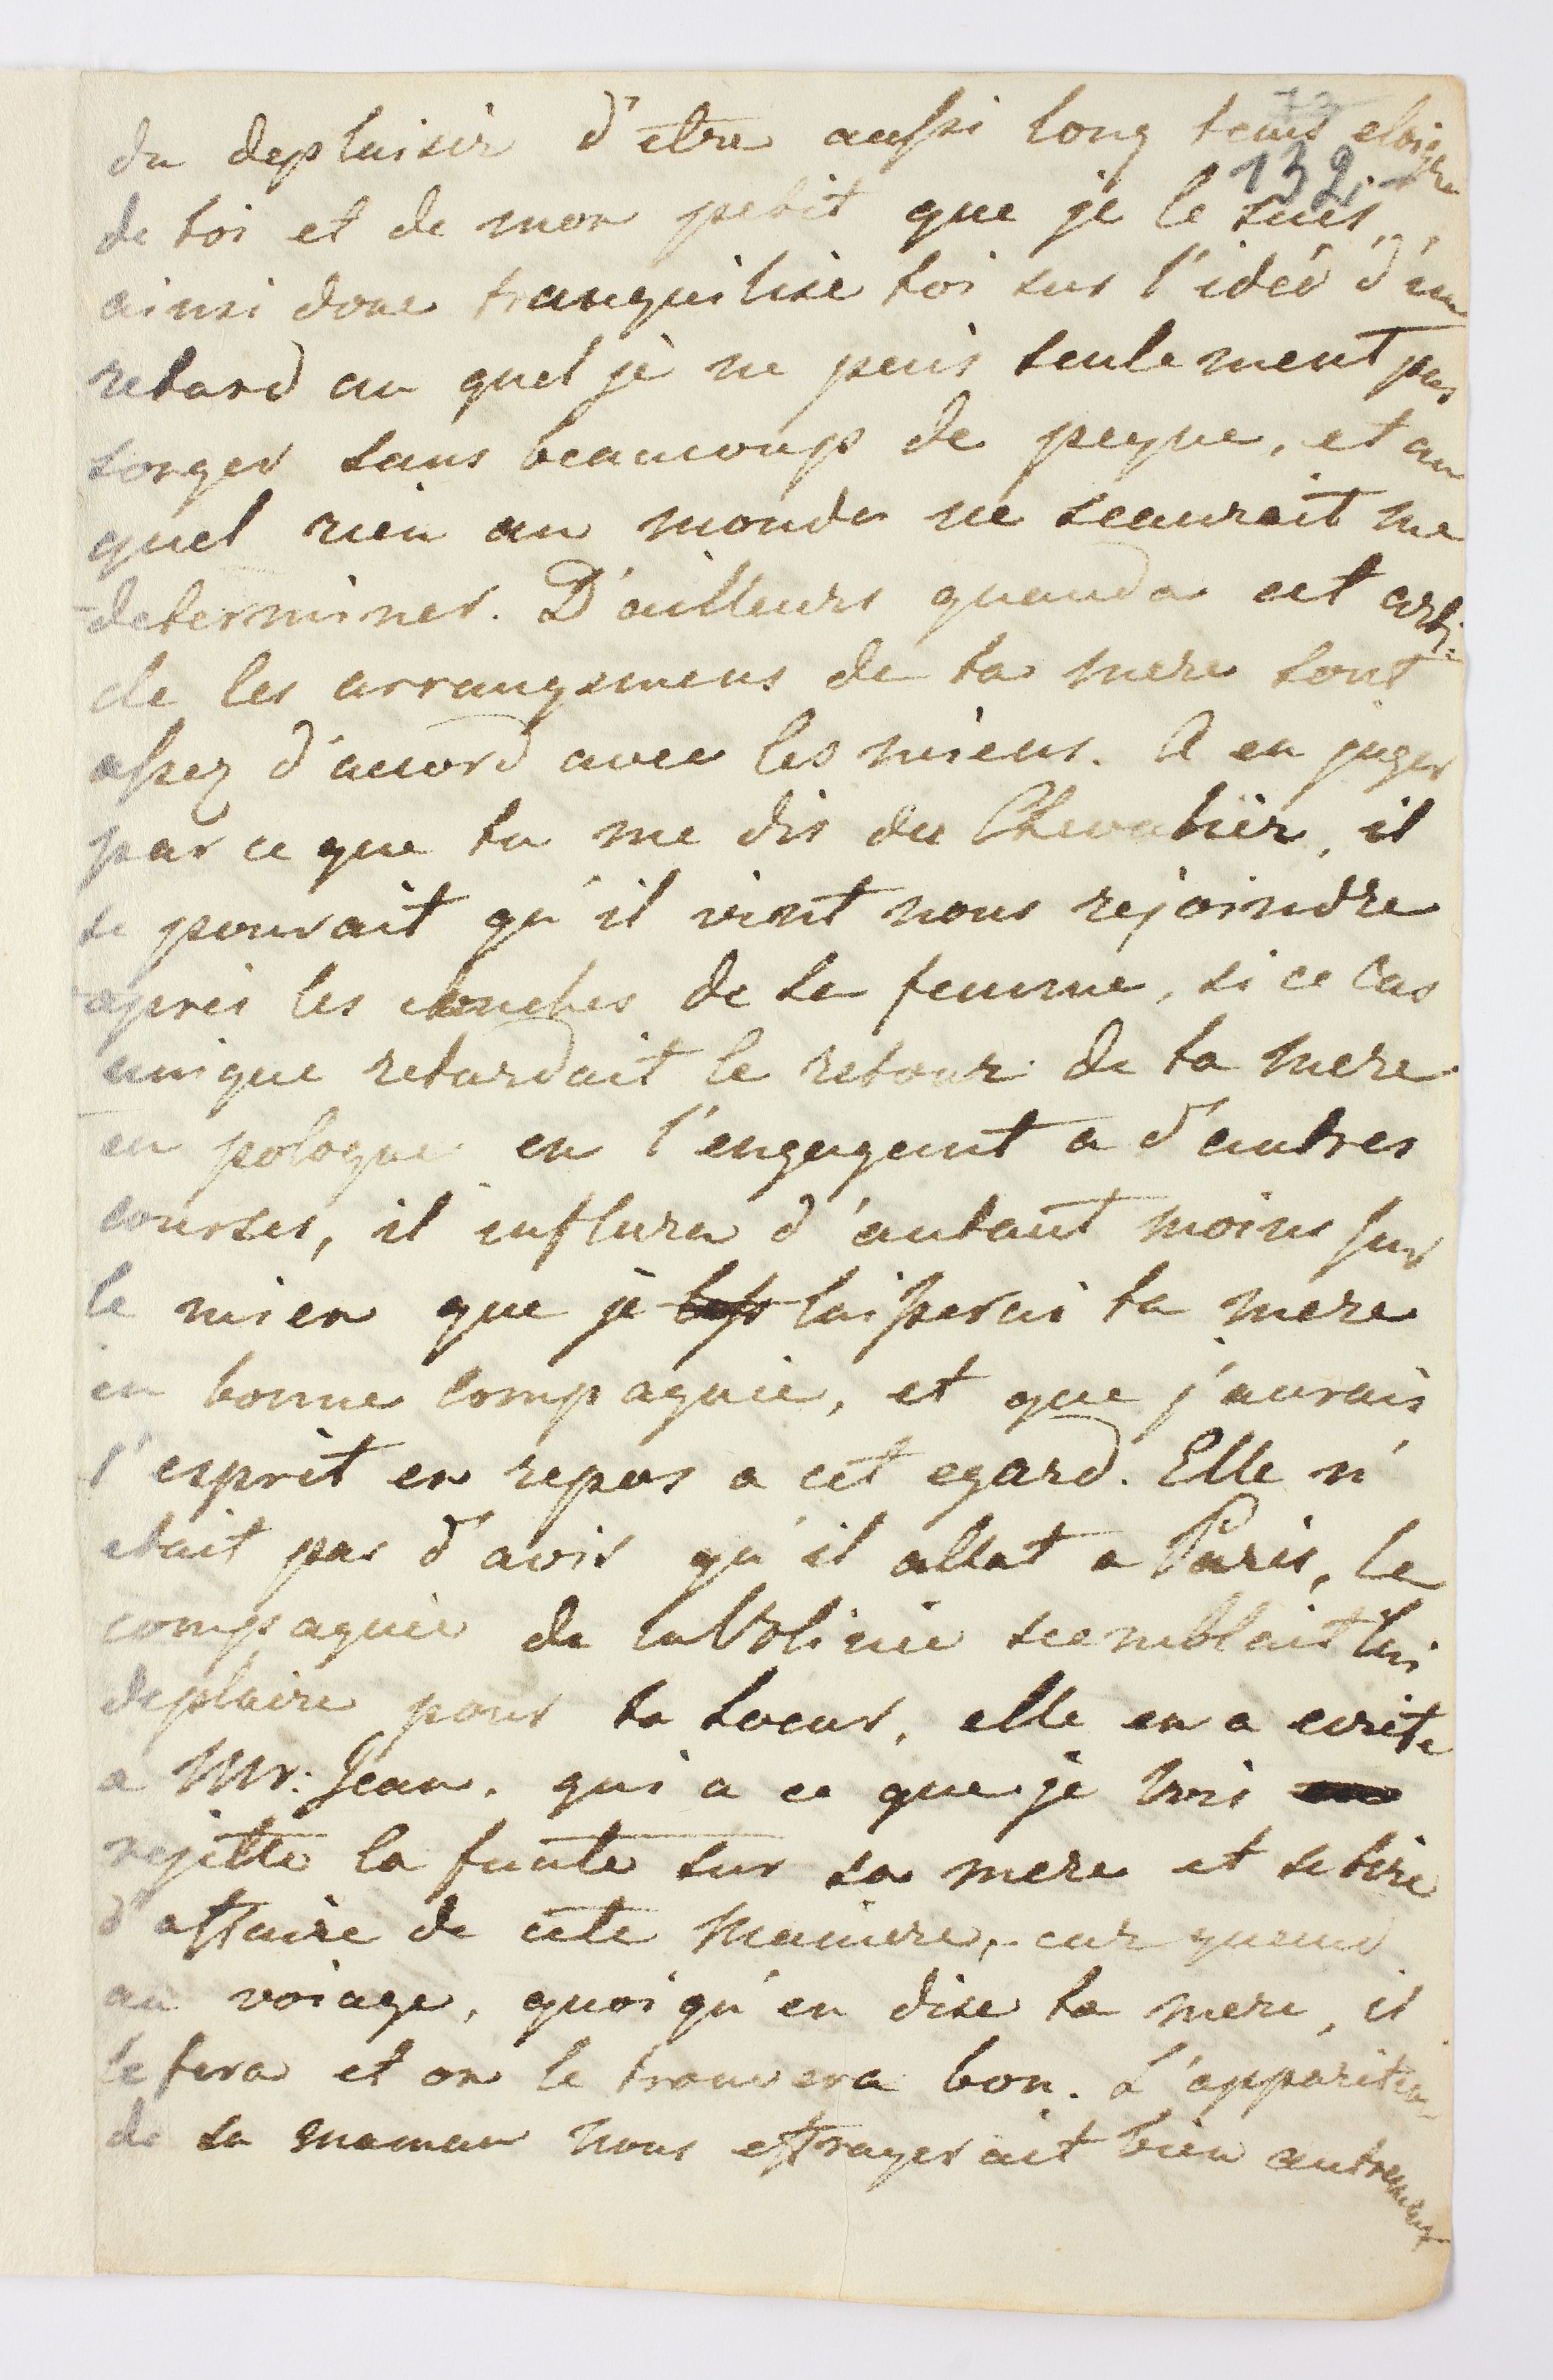 132.
du deplaisir d'etre aussi long tems eloigné
de toi et de mon petit que je le suis,
ainsi donc tranquilise toi sur l'ideé d'un
retard au quel je ne peus seulement pas
songer sans beaucoup de peyne, et au
quel rien au monde ne scaurait me
determiner. D'ailleurs quand a cet arti-
cle les arrangemens de ta mere sont
assez d'accord avec les miens. A en juger
par ce que tu me dis du Chevalier, il
se pourait qu'il vint nous rejoindre
après les couches de sa femme, si ce cas
unique retardait le retour de ta mere
en pologne en l'engageant a d'autres
courses, il influra d'autant moins sur
le mien que je laisserai ta mere
en bonne compagnie, et que j'aurais
l'esprit en repos a cet egard. Elle n'
etait pas d'avis qu'il allat a Paris, la
compagnie de la scemblait lui
deplaire pour ta soeur, elle en a ecrit
a Mr: Jean, qui a ce que je vois
rejette la faute sur sa mere et se tire
d'affaire de cete maniere, car quand
au voiage, quoi qu'en dise ta mere, il
le fera et on le trouvera bon. L'apparition
de sa maman nous effrayerait bien autrement